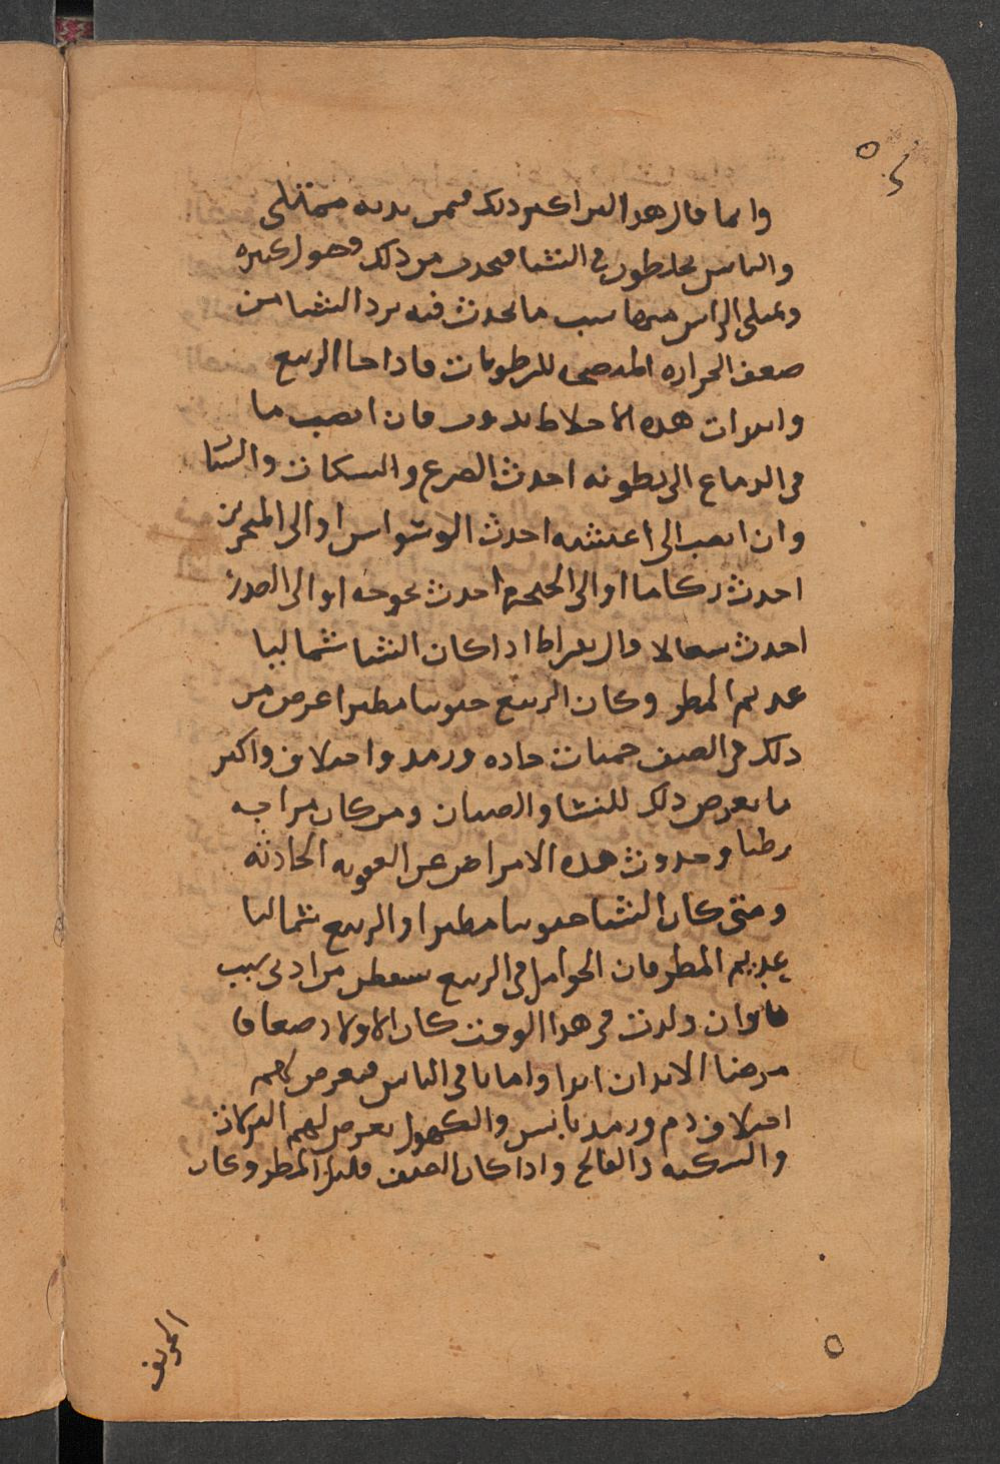 وانما قال هدا البراكىر دلك فىمن بدنه ممتلى
والناس ىخلطون فى الشتا فىحدث من ذلك فضول كىىره
وىمتلى الراس منها بسبب ما ىحدث فىه برد الشتا من
ضعف الحراره المنضجه للرطوبات فاذا جا الربىع
وابتدات هذه الاخلاط تدوب فان انصب ما
فى الدماغ الى بطونه احدث الصرع والسكات والسكتا
وان انصب الى اغشىته احدث الوسواس او الى المنخرىن
احدث زكاما او الى الحنجرة احدث بحوحه او الى الصدر
احدث سعالا وقال بقراط اذا كان الشتا شمالىا
عدىم المطر وكان الربىع جنوبىا مطىرا عرض من
ذلك فى الصىف حمىات حاده ورمد واختلاف واكثر
ما ىعرض ذلك للنسا والصبىان ومن كان مزاجه
رطبا وحدوث هذه الامراض عن العفونه الحادثه
ومتى كان الشتا جنوبىا مطىرا والربىع شمالىا
عدىم المطر فان الحوامل فى الربىع ىسقطن من ادنى سبب
فان ولدت فى هذا الوقت كان الاولاد ضعافا
مرضا الابدان ابدا واما باقى الناس فىعرض لهم
اختلاف دم ورمد ىابس والكهول ىعرض لهم النزلات
والسكته والفالج واذا كان الصىف قلىل المطر وكان
الخرىف